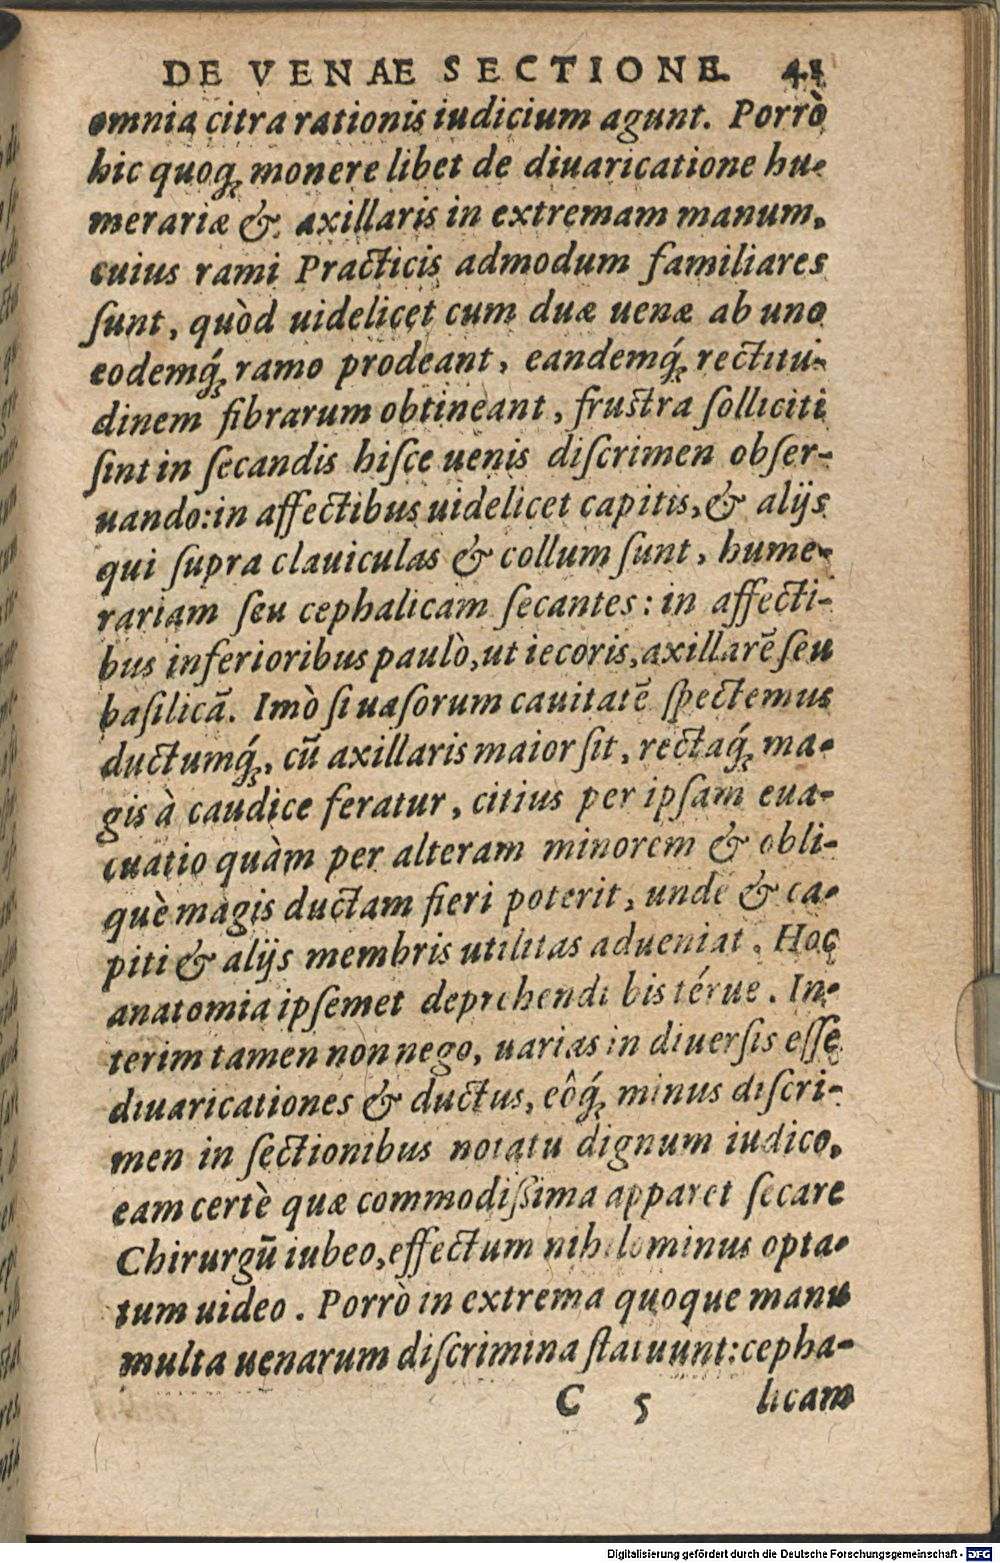 DE VENAE SECTIONE. 41
omnia citra rationis iudicium agunt. Porrò
hic quoq; monere libet de diuaricatione hu-
merariæ & axillaris in extremam manum,
cuius rami Practicis admodum familiares
ſunt, quòd uidelicet cum duæ uenæ ab uno
eodemq́; ramo prodeant, eandemq́; rectitu-
dinem fibrarum obtineant, fruſtra ſolliciti
ſint in ſecandis hiſce uenis diſcrimen obſer-
uando: in affectibus uidelicet capitis, & alijs
qui ſupra clauiculas & collum ſunt, hume-
rariam ſeu cephalicam ſecantes: in affecti-
bus inferioribus paulò, ut iecoris, axillarē ſeu
baſilicā. Imò ſi uaſorum cauitatē ſpectemus
ductumq́;, cū axillaris maior ſit, rectaq́; ma-
gis à caudice feratur, citius per ipſam eua-
cuatio quàm per alteram minorem & obli-
què magis ductam fieri poterit, unde & ca-
piti & alijs membris utilitas adueniat. Hoc
anatomia ipſemet deprehendi bis térue. In-
terim tamen non nego, uarias in diuerſis eſſe
diuaricationes & ductus, eôq́; minus diſcri-
men in ſectionibus notatu dignum iudico,
eam certè quæ commodiſsima apparet ſecare
Chirurgū iubeo, effectum nihilominus opta-
tum uideo. Porrò in extrema quoque manu
multa uenarum diſcrimina ſtatuunt: cepha-
C 5 licam
Digitalisierung gefördert durch die Deutsche Forschungsgemeinschaft - DFG